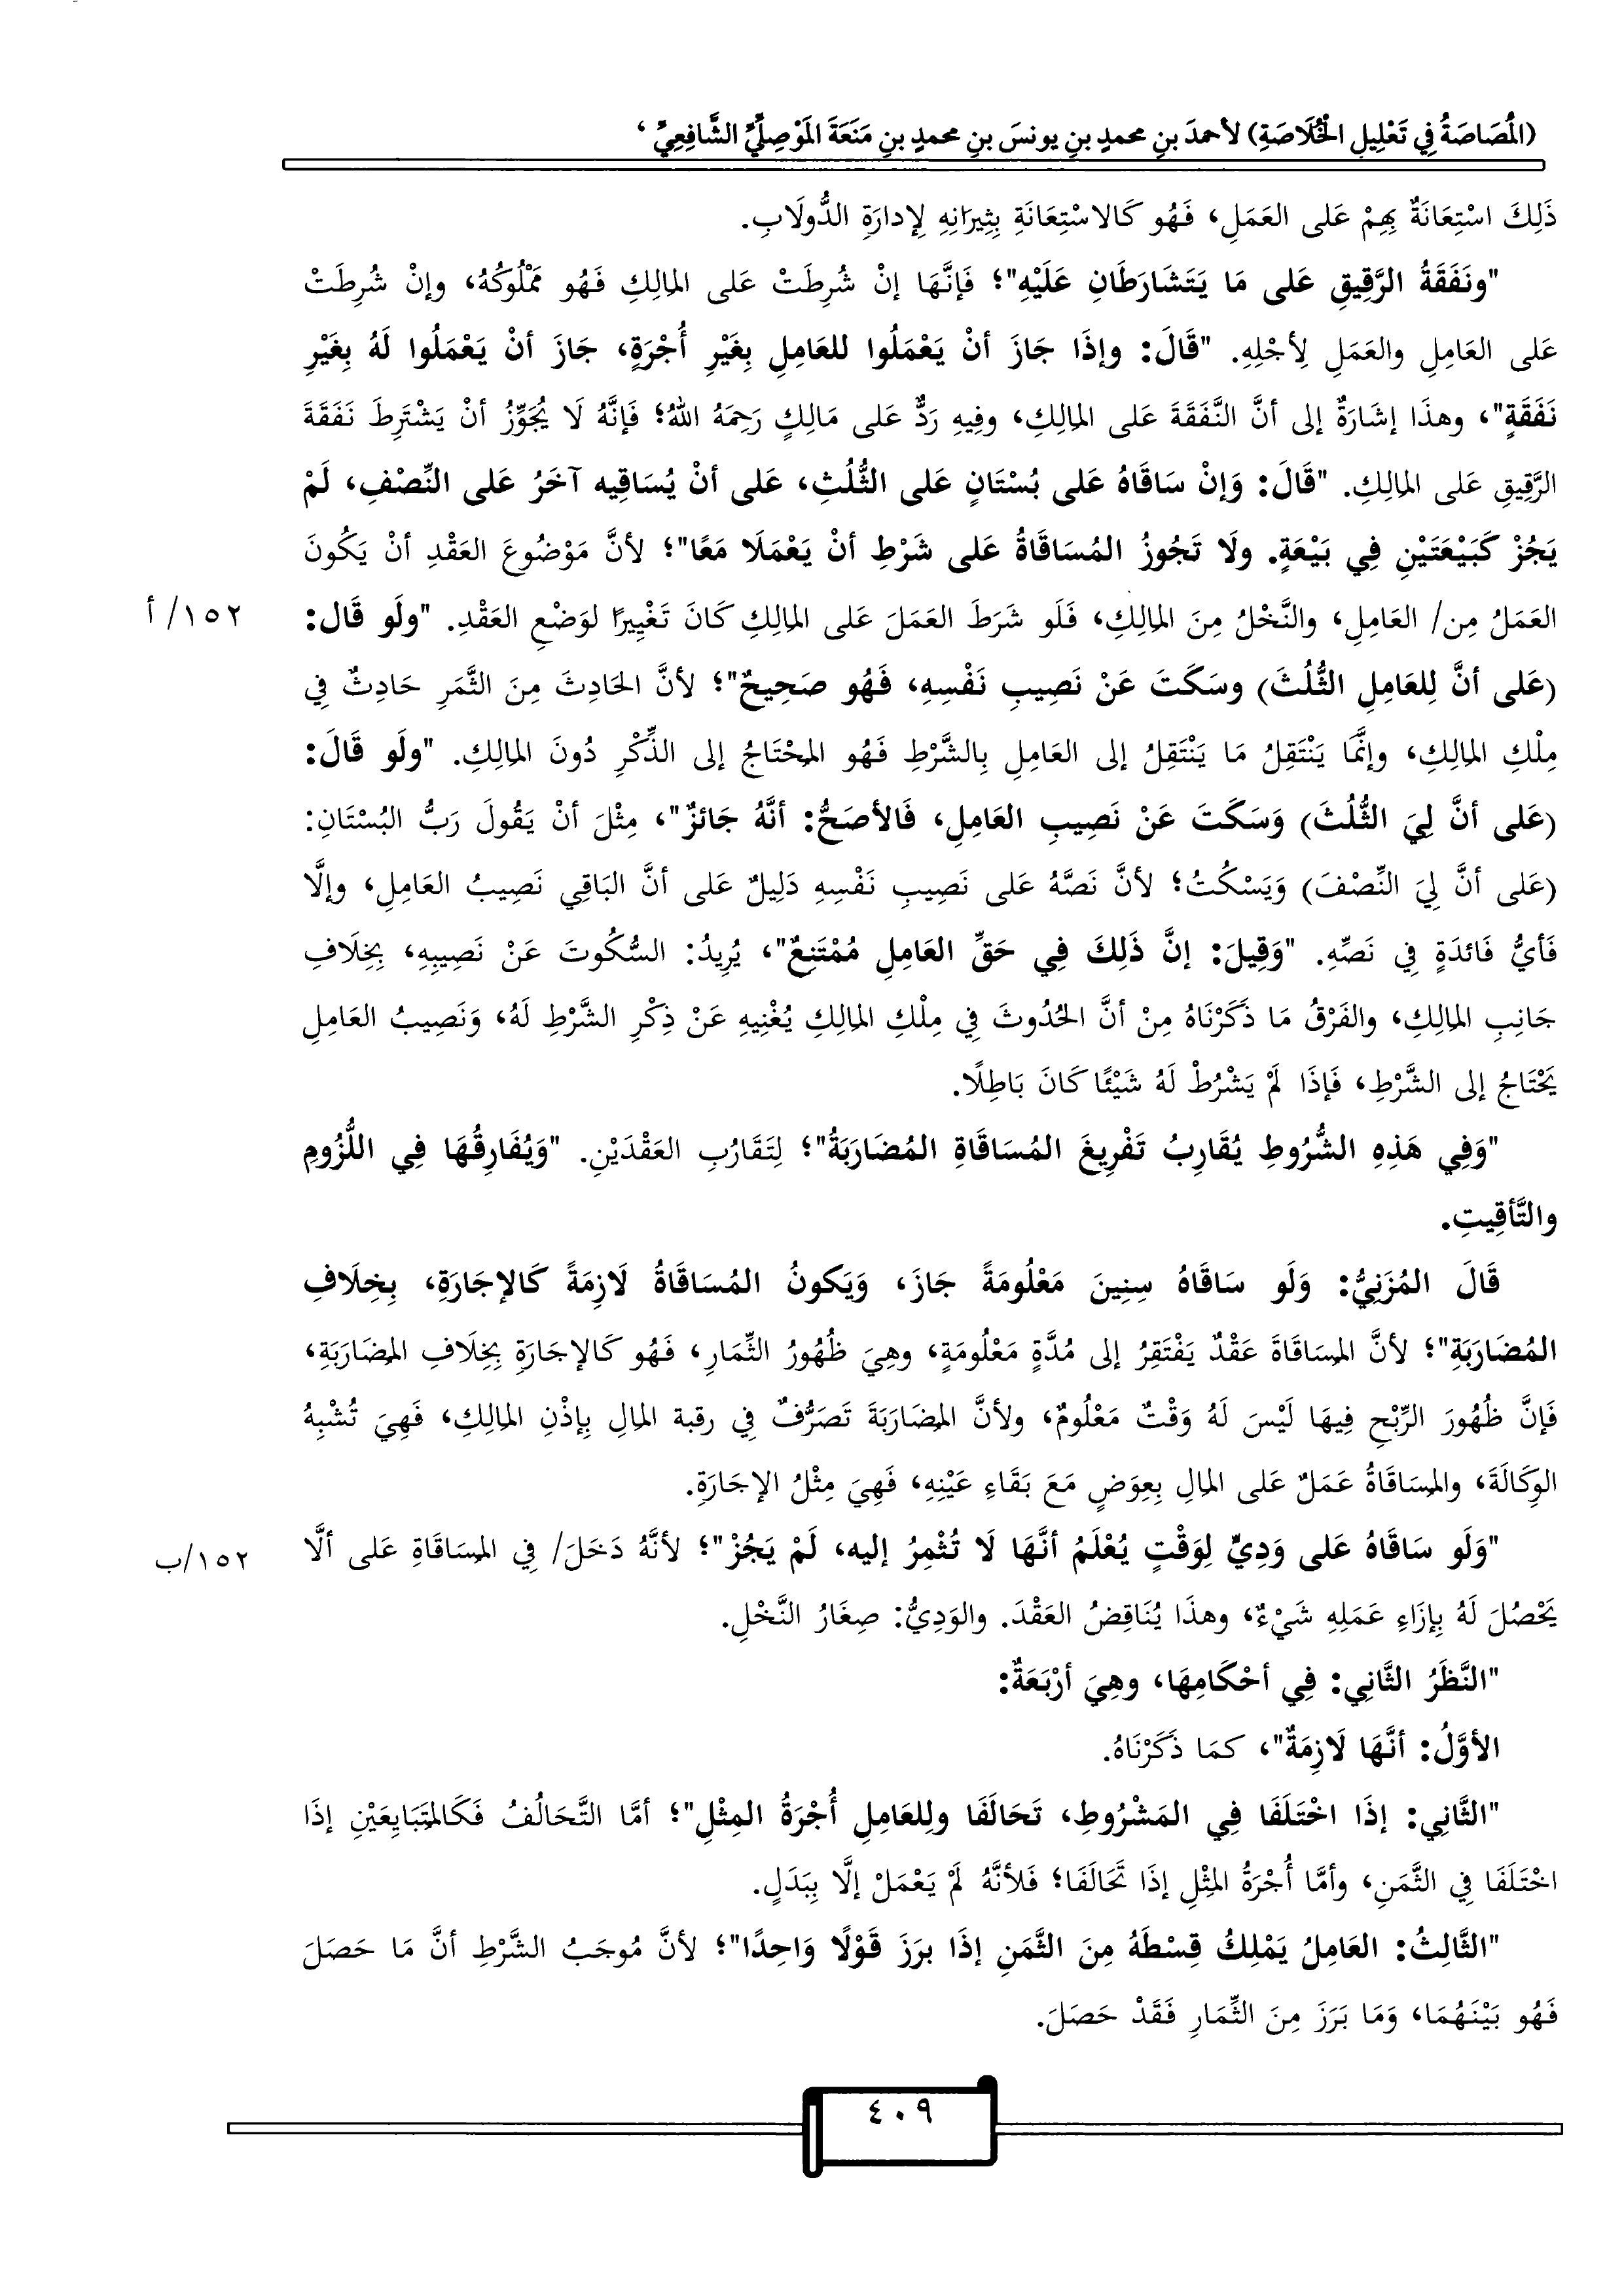 (المُصَاصَةُ فِي تَعْلِيلِ الخُلَاصَةِ) لأحمدَ بنِ محمدٍ بنِ يونسَ بنِ محمدٍ بنِ مَنَعَةَ المَوْصِلِيِّ الشَّافِعِيِّ ،
ذَلِكَ اسْتِعَانَةٌ بِهِمْ عَلى العَمَلِ، فَهُو كَالاسْتِعَانَةِ بِثِيرَانِهِ لِإدارَةِ الدُّولَابِ.
"ونَفَقَةُ الرَّقِيقِ عَلى مَا يَتَشَارَطَانِ عَلَيْهِ"؛ فَإنَّهَا إنْ شُرِطَتْ عَلى المالِكِ فَهُو مَمْلُوكُهُ، وإنْ شُرِطَتْ
عَلى العَامِلِ والعَمَلِ لِأجْلِهِ. "قَالَ: وإذَا جَازَ أنْ يَعْمَلُوا للعَامِلِ بِغَيْرِ أُجْرَةٍ، جَازَ أنْ يَعْمَلُوا لَهُ بِغَيْرِ
نَفَقَةٍ"، وهذَا إشَارَةٌ إلى أنَّ النَّفَقَةَ عَلى المالِكِ، وفِيهِ رَدٌّ عَلى مَالِكٍ رَحِمَهُ اللهُ؛ فَإنَّهُ لَا يُجَوِّزُ أنْ يَشْتَرِطَ نَفَقَةَ
الرَّقِيقِ عَلى المالِكِ. "قَالَ: وَإنْ سَاقَاهُ عَلى بُسْتَانٍ عَلى الثُّلُثِ، عَلى أنْ يُسَاقِيه آخَرُ عَلى النِّصْفِ، لَمْ
يَجُزْ كَبَيْعَتَيْنِ فِي بَيْعَةٍ. ولَا تَجُوزُ المُسَاقَاةُ عَلى شَرْطِ أنْ يَعْمَلَا مَعًا"؛ لأنَّ مَوْضُوعَ العَقْدِ أنْ يَكُونَ
العَمَلُ مِن/ العَامِلِ، والنَّخْلُ مِنَ المالِكِ، فَلَو شَرَطَ العَمَلَ عَلى المالِكِ كَانَ تَغْيِيرًا لوَضْعِ العَقْدِ. "ولَو قَال: ١٥٢/ أ
(عَلى أنَّ لِلعَامِلِ الثُّلُثَ) وسَكَتَ عَنْ نَصِيبِ نَفْسِهِ، فَهُو صَحِيحٌ"؛ لأنَّ الحَادِثَ مِنَ الثَّمَرِ حَادِثٌ فِي
مِلْكِ المالِكِ، وإنَّمَا يَنْتَقِلُ مَا يَنْتَقِلُ إلى العَامِلِ بِالشَّرْطِ فَهُو المحْتَاجُ إلى الذِّكْرِ دُونَ المالِكِ. "ولَو قَالَ:
(عَلى أنَّ لِيَ الثُّلُثَ) وَسَكَتَ عَنْ نَصِيبِ العَامِلِ، فَالأصَحُّ: أنَّهُ جَائزٌ"، مِثْلَ أنْ يَقُولَ رَبُّ البُسْتَانِ:
(عَلى أنَّ لِيَ النِّصْفَ) وَيَسْكُتُ؛ لأنَّ نَصَّهُ عَلى نَصِيبِ نَفْسِهِ دَلِيلٌ عَلى أنَّ البَاقِي نَصِيبُ العَامِلِ، وإلَّا
فَأيُّ فَائدَةٍ فِي نَصِّهِ. "وَقِيلَ: إنَّ ذَلِكَ فِي حَقِّ العَامِلِ مُمْتَنِعٌ"، يُرِيدُ: السُّكُوتَ عَنْ نَصِيبِهِ، بِخِلَافِ
جَانِبِ المالِكِ، والفَرْقُ مَا ذَكَرْنَاهُ مِنْ أنَّ الحُدُوثَ فِي مِلْكِ المالِكِ يُغْنِيهِ عَنْ ذِكْرِ الشَّرْطِ لَهُ، وَنَصِيبُ العَامِلِ
يَحْتَاجُ إلى الشَّرْطِ، فَإذَا لَمْ يَشْرُطْ لَهُ شَيْئًا كَانَ بَاطِلًا.
"وَفِي هَذِهِ الشُّرُوطِ يُقَارِبُ تَفْرِيعَ المُسَاقَاةِ المُضَارَبَةُ"؛ لِتَقَارُبِ العَقْدَيْنِ. "وَيُفَارِقُهَا فِي اللُّزُومِ
والتَّأقِيتِ.
قَالَ المُزَنِيُّ: وَلَو سَاقَاهُ سِنِينَ مَعْلُومَةً جَازَ، وَيَكونُ المُسَاقَاةُ لَازِمَةً كَالإجَارَةِ، بِخِلَافِ
المُضَارَبَةِ"؛ لأنَّ المسَاقَاةَ عَقْدٌ يَفْتَقِرُ إلى مُدَّةٍ مَعْلُومَةٍ، وهِيَ ظُهُورُ الثِّمَارِ، فَهُو كَالإجَارَةِ بِخِلَافِ المضَارَبَةِ،
فَإنَّ ظُهُورَ الرِّبْحِ فِيهَا لَيْسَ لَهُ وَقْتٌ مَعْلُومٌ، ولأنَّ المضَارَبَةَ تَصَرُّفٌ فِي رقبة المالِ بِإذْنِ المالِكِ، فَهِيَ تُشْبِهُ
الوِكَالَةَ، والمسَاقَاةُ عَمَلٌ عَلى المالِ بِعِوَضٍ مَعَ بَقَاءِ عَيْنِهِ، فَهِيَ مِثْلُ الإجَارَةِ.
"وَلَو سَاقَاهُ عَلى وَدِيٍّ لِوَقْتٍ يُعْلَمُ أنَّهَا لَا تُثْمِرُ إليه، لَمْ يَجُزْ"؛ لأنَّهُ دَخَلَ/ فِي المسَاقَاةِ عَلى ألَّا ١٥٢/ب
يَحْصُلَ لَهُ بِإزَاءِ عَمَلِهِ شَيْءٌ، وهذَا يُنَاقِضُ العَقْدَ. والوَدِيُّ: صِغَارُ النَّخْلِ.
"النَّظَرُ الثَّانِي: فِي أحْكَامِهَا، وهِيَ أرْبَعَةٌ:
الأوَّلُ: أنَّهَا لَازِمَةٌ"، كمَا ذَكَرْنَاهُ.
"الثَّانِي: إذَا اخْتَلَفَا فِي المَشْرُوطِ، تَحَالَفَا ولِلعَامِلِ أُجْرَةُ المِثْلِ"؛ أمَّا التَّحَالُفُ فَكَالمتَبَايِعَيْنِ إذَا
اخْتَلَفَا فِي الثَّمَنِ، وأمَّا أُجْرَةُ المثْلِ إذَا تَحَالَفَا؛ فَلأنَّهُ لَمْ يَعْمَلْ إلَّا بِبَدَلٍ.
"الثَّالِثُ: العَامِلُ يَمْلِكُ قِسْطَهُ مِنَ الثَّمَنِ إذَا برَزَ قَوْلًا وَاحِدًا"؛ لأنَّ مُوجَبُ الشَّرْطِ أنَّ مَا حَصَلَ
فَهُو بَيْنَهُمَا، وَمَا بَرَزَ مِنَ الثِّمَارِ فَقَدْ حَصَلَ.
٤٠٩